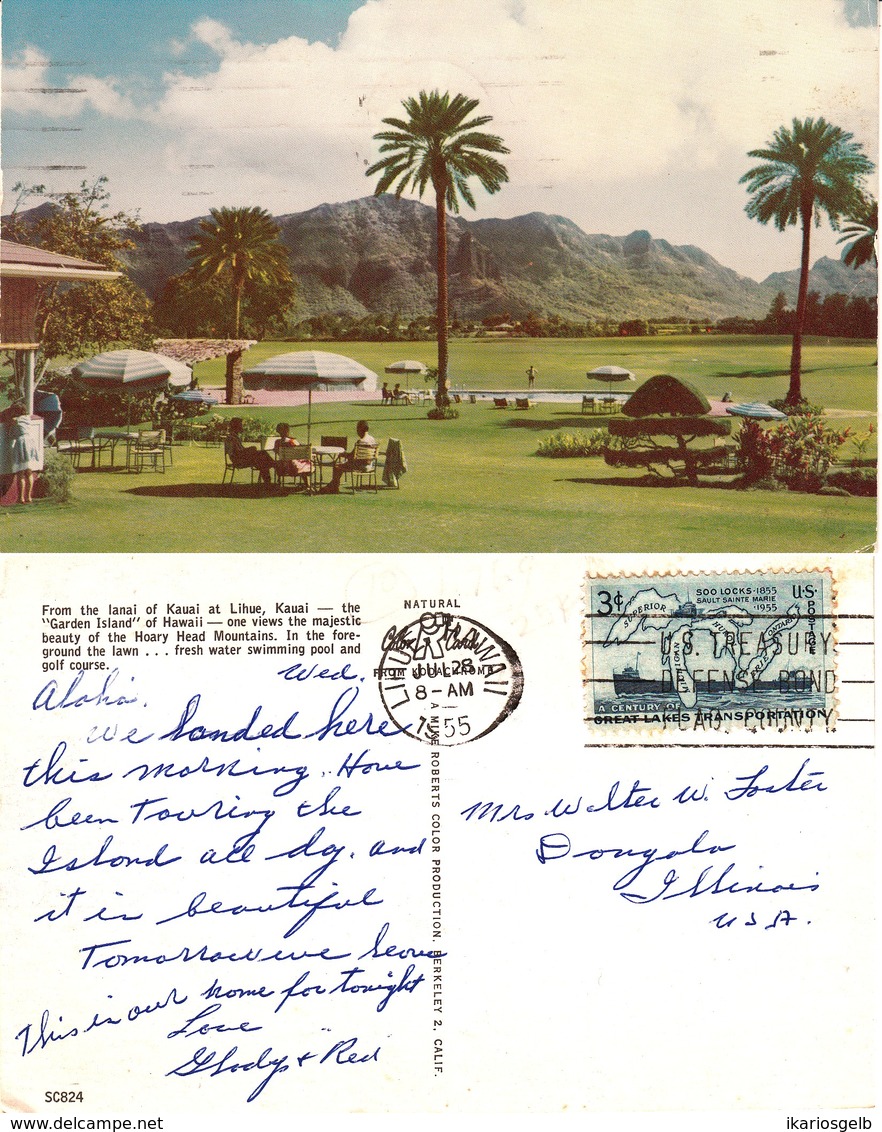 From the lanai of Kauai at Lihue, Kauai — the
"Garden Island" of Hawaii — one views the majestic
beauty of the Hoary Head Mountains. In the fore-
ground the lawn . . . fresh water swimming pool and
golf course.
Wed.
Aloha.
We landed here
this morning. Have
been Touring the
Island all day. and
it is beautiful
Tomorrow we leave
This is our home for tonight
Love
Gladys + Red
SC824
NATURAL
Color Card
FROM KODACHROME
LIHUE HAWAII
JUL 28
8-AM
1955
A MIKE ROBERTS COLOR PRODUCTION, BERKELEY 2, CALIF.
3¢
SOO LOCKS·1855
SAULT SAINTE MARIE
·1955
U·S·
POSTAGE
SUPERIOR
HURON
ONTARIO
MICHIGAN
ERIE
A CENTURY OF
GREAT LAKES TRANSPORTATION
U.S. TREASURY
DEFENSE BOND
Mrs Walter W. Foster
Dongola
Illinois
USA.
www.delcampe.net
ikariosgelb